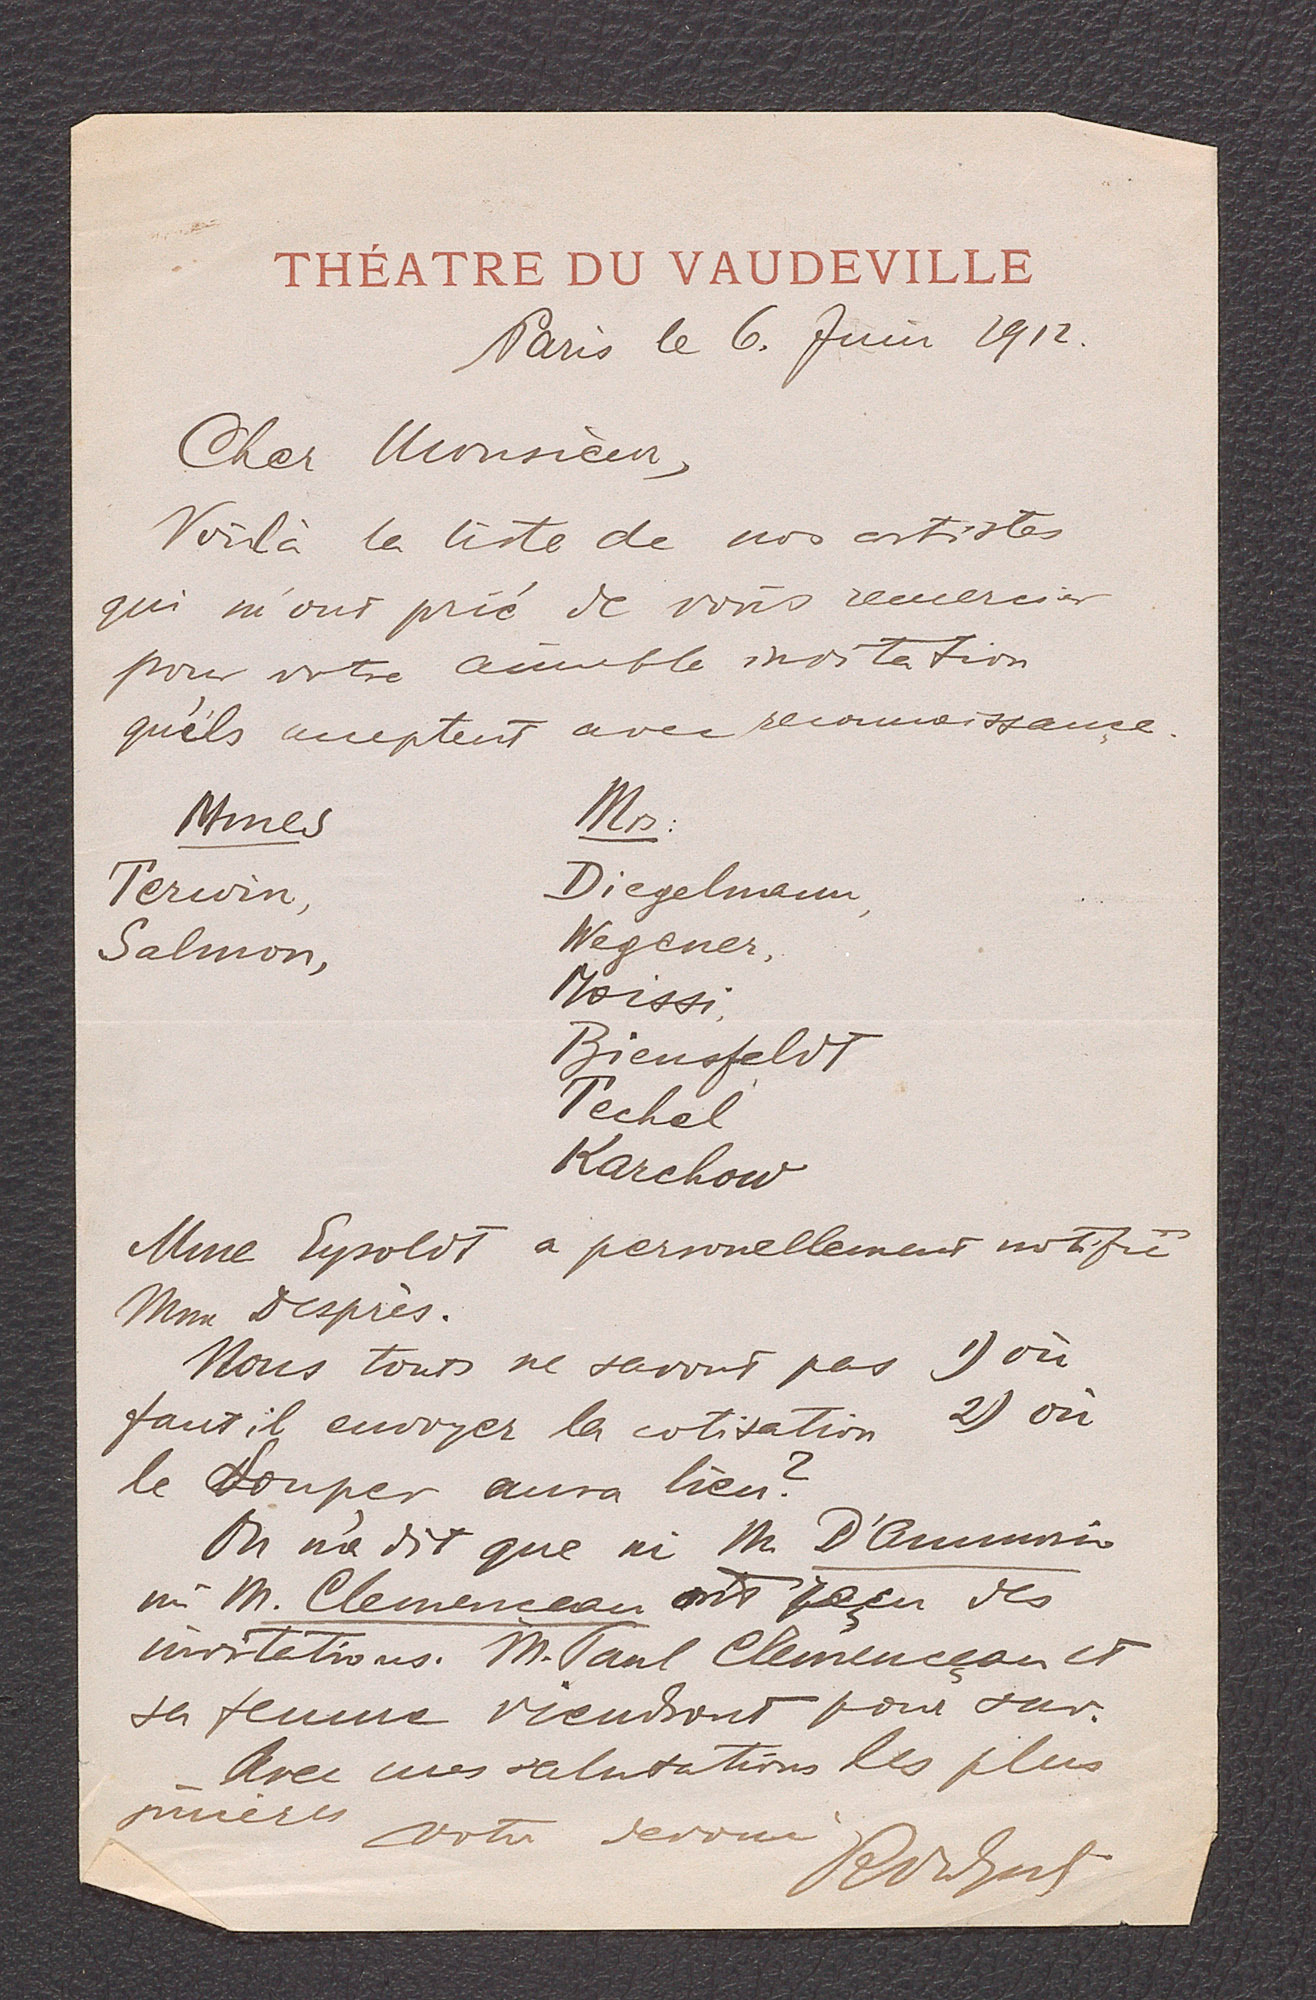 THÉATRE DU VAUDEVILLE
Paris le 6. Juin 1912.
Cher Monsieur,
Voilà la liste de nos artistes
qui m'ont prié de vous remercier
pour votre aimable invitation
qu'ils acceptent avec reconnaissançe.
Mmes
Mrs:
Terwin,
Diegelmann,
Salmon,
Wegener,
Moissi,
Biensfeldt
Techel
Karchow
Mme Eysoldt a personellement notifié
Mme Desprès.
Nous tous ne savont pas 1) où
faut il envoyer la cotisation 2) où
le Souper aura lieu?
On m'a dit que ni M. D'Annunzio
ni M. Clemenceau ont reçu des
invitations. M. Paul Clemençeau et
sa femme viendront pour sur.
Avec mes salutations les plus
sincères
votre devoué